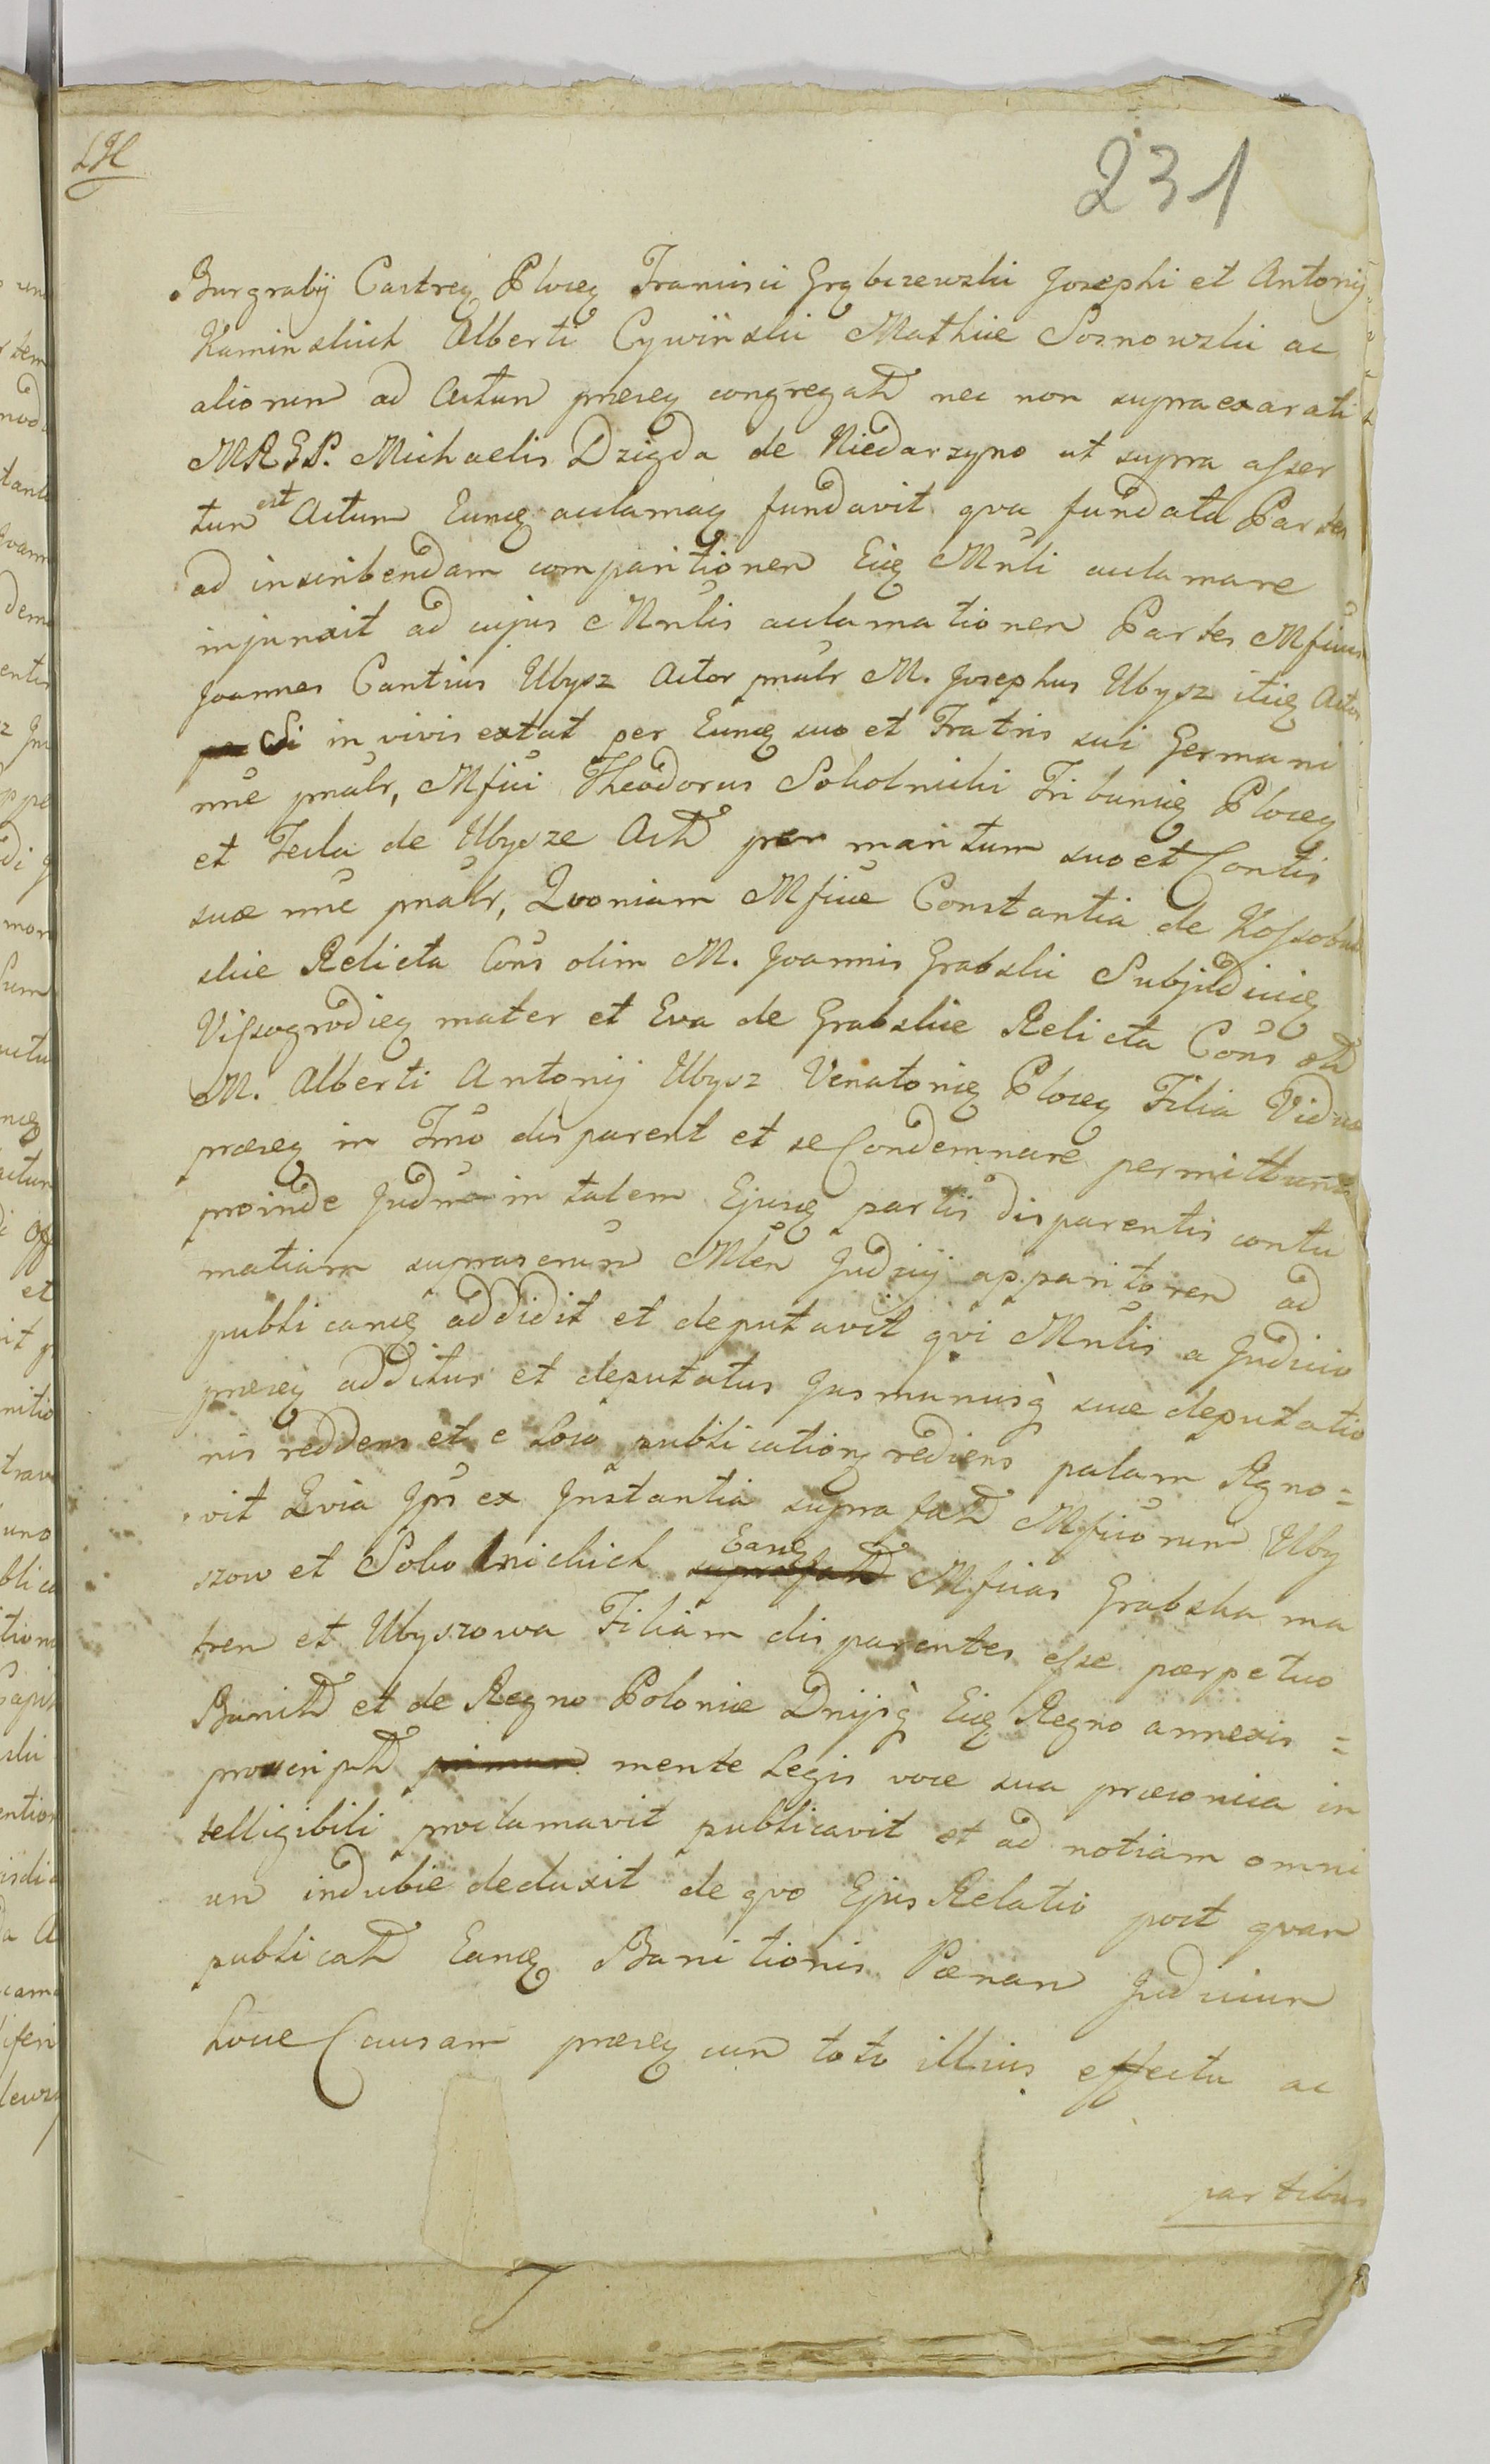 LH
231
Burgrabij Castreɳ Ploceɳ Francisci Grąbczewski Josephi et Antonij
Kaminskich Alberti Cywiński Mathiæ Sosnowski ac
aliorum ad Actum præseɳ congregat nec non supraexarati
MRGP. Michaelis Dzigda de Niedarzyno ut supra asser
tum est Actum Eunɖ acclamaɳ fundavit qva fundata Partes
ad inscribendam comparitionem Eiɖ Mnli acclamare
injunxit ad cujus Mnlis acclamationem Partes Mfici
Joannes Cantius Ubysz Actor pnalr M. Josephus Ubysz itiɖ Actor
Si in vivis extat per Eunɖ suo et Fratris sui Germani
nne pnalr, Mfici Theodorus Sokolnicki Tribuniɖ Ploceɳ
et Tecla de Ubysze Act per maritum suo et Contis
suæ nne pnalr, Qvoniam Mficæ Constantia de
skie Relicta Cons olim M. Joannis Grabski Subjudiciɖ
Vissogrodieɳ mater et Eva de Grabskie Relicta Cons
M. Alberti Antonij Ubysz Venatoriɖ Ploceɳ Filia Vidua
præseɳ in Tmo disparent et se Condemnare permittunt
proinde Judm in talem Ejusɖ partis disparentis contu
matiam suprascrum Mlem Judicij apparitorem ad
publicanɖ addidit et deputavit qvi Mnlis a Judicio
præseɳ additus et deputatus Jus munusq̀ suæ deputatio
nis reddens et e loco publicationɳ rediens palam Rgno=
vit Qvia Ips ex Instantia supra fat Mficorum Uby
szow et Sokolnickich Eanɖ Mficas Grabska ma
trem et Ubyszowa Filiam disparentes esse perpetuo
Banit et de Regno Poloniæ Dnijsq̀ Eiɖ Regno annexis =
proscript mente Legis voce sua præconica in
telligibili proclamavit publicavit et ad notiam omni
um indubie deduxit de qvo Ejus Relatio post qvam
publicat Eanɖ Banitionis Pænam Judicium
Love Causam præseɳ cum toto illius effectu ac
partibus